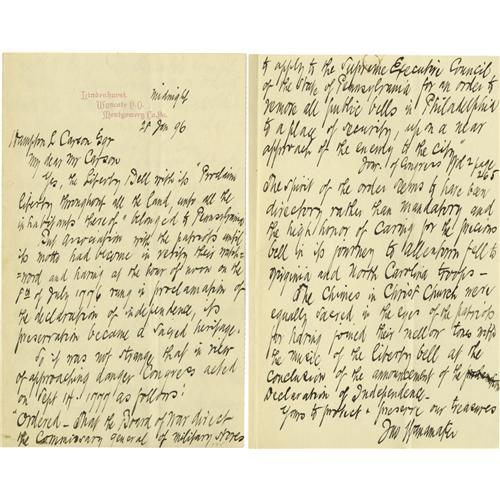 Lindenhurst
Wyncote P.O.
Montgomery Co. Pa.
midnight
28 Jan 96
Hampton L Carson Esqr
My dear Mr Carson
Yes, the Liberty Bell with its "Proclaim
liberty throughout all the land, unto all the
inhabitants thereof" belonged to Pennsylvania
But association with the patriots until
its motto had become in verity their watch
=word and having at the hour of noon on the
of July 1776 rung in proclamation of
the declaration of independence, its
preservation became a sacred heritage.
So it was not strange that in view
of approaching danger Congress acted
on Sept 14. 1777 as follows:
"Ordered - That the Board of War direct
the Commissary general of military stores
to apply to the Supreme Executive Council
of the State of Pennsylvania for an order to
remove all public bells in Philadelphia
to a place of security, upon a near
approach of the enemy to the city"
Jour. of Congress Vol 2 page
The spirit of the order seems to have been
directory rather than mandatory and
the high honor of caring for the precious
bell in its journey to Allentown fell to
Virginia and North Carolina troops -
The Chimes in Christ Church were
equally sacred in the eyes of the patriots
for having joined their mellow tones with
the music of the liberty bell at the
conclusion of the announcement of the
Declaration of Independence -
Yours to protect & preserve our treasures
Jno Wanamaker